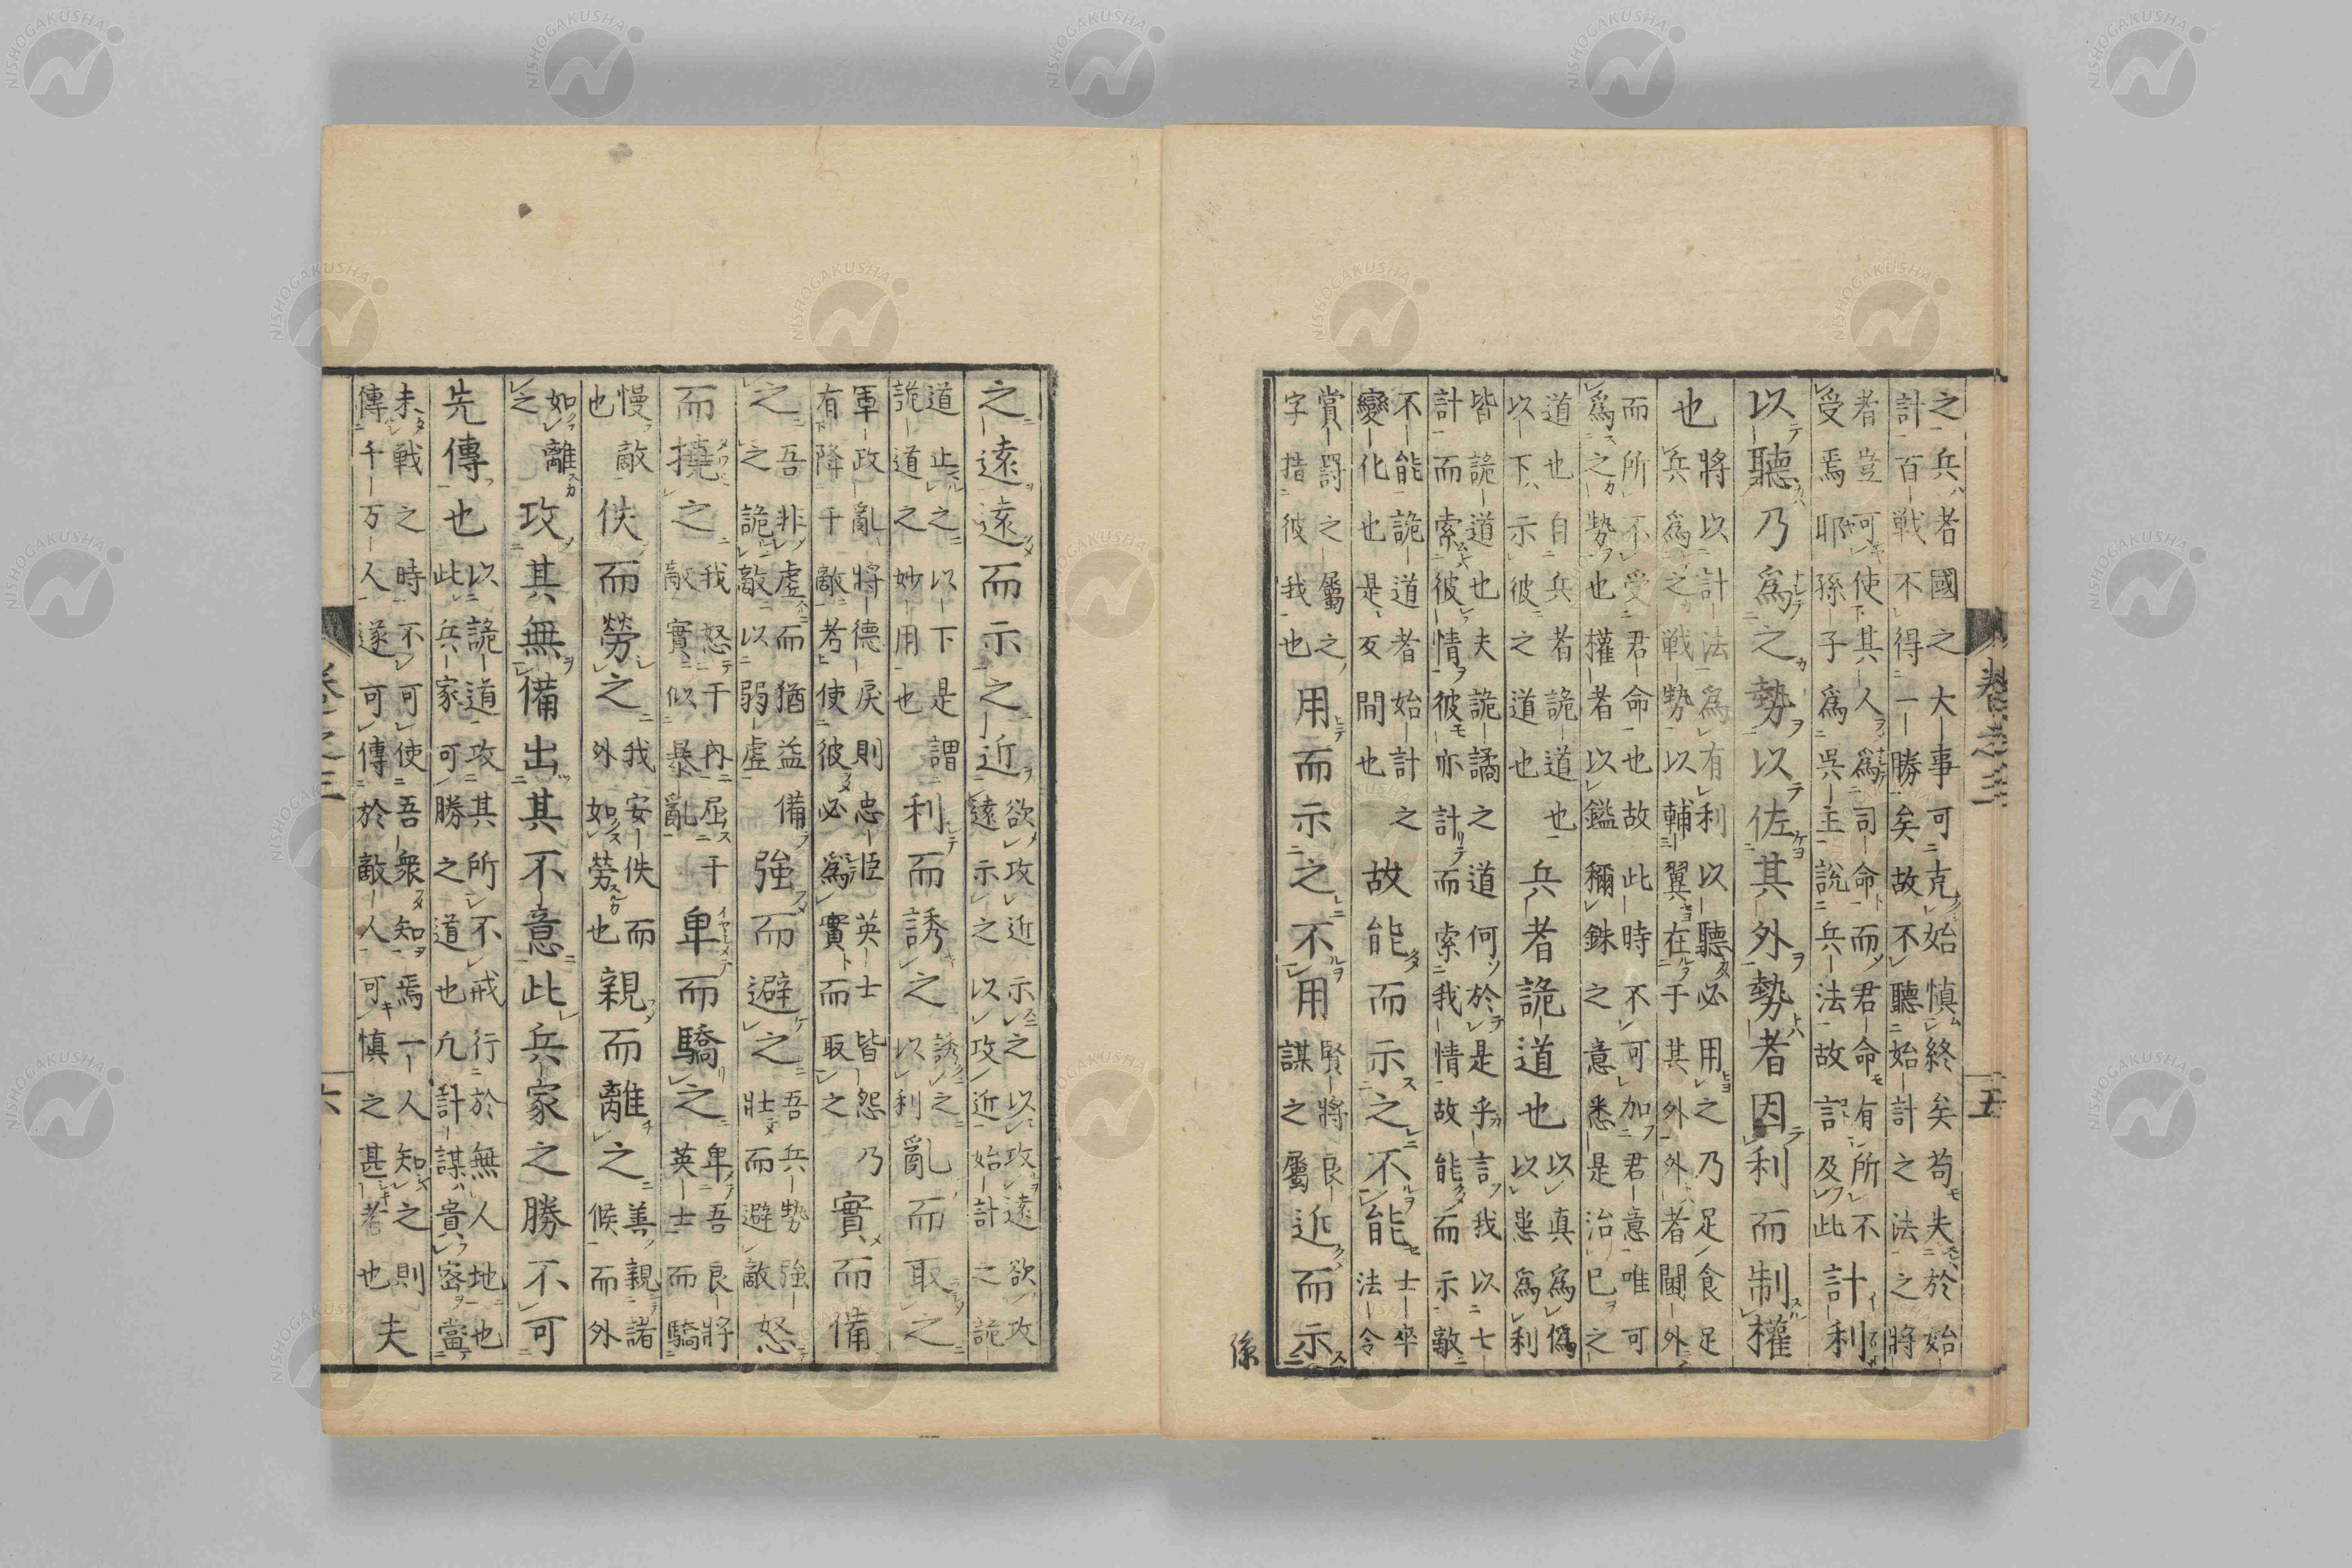 之兵者國之大事可克始愼終矣苟失於始
計百戰不得一勝矣故不聽始計之法之將
者豈可使其人爲司命而君命有所不
受焉耶孫子爲吳主說兵法故言及此
計利
以聽乃爲之勢以佐其外勢者因利而制權
也
將以計法爲有利以聽必用之乃足食足
兵爲之戰勢以輔翼在于其外外者閫外
而所不受君命也故此時不可加君意唯可
爲之勢也權者以鑑稱銖之意悉是治已之
道也自兵者詭道也
以下示彼之道也
兵者詭道也
以真爲僞
以患爲利
皆詭道也夫詭譎之道何於是乎言我以七
計而索彼情彼亦計而索我情故能而示敵
不能詭道者始計之
變化也是反間也
故能而示之不能
士卒
法令
賞罰之屬之
字措彼我也
用而示之不用
賢將
謀之
良
屬
近而示
之遠遠而示之近
欲攻近示之以攻遠欲攻
遠示之以攻近始計之詭
道止之以下是謂
詭道之妙用也
利而誘之
誘之
以利
亂而取之
軍政亂將德戾則忠臣英士皆怨乃
有降于敵者使彼必爲實而取之
實而備
之
吾非虛而猶益備
之詭敵以弱虛
強而避之
吾兵勢強
壯而避敵
怒
而撓之
我怒于內屈于
敵實似暴亂
卑而驕之
卑吾良將
英士而驕
慢敵
也
佚而勞之
我安佚而
外如勞也
親而離之
善親諸
候而外
如離
之
攻其無備出其不意此兵家之勝不可
先傳也
以詭道攻其所不戒行於無人地也
此兵家可勝之道也凢計謀貴密當
未戰之時不可使吾衆知焉一人知之則
傳千万人遂可傳於敵人可愼之甚者也
夫
卷之三
五
卷之三
六
係
NISHOGAKUSHA